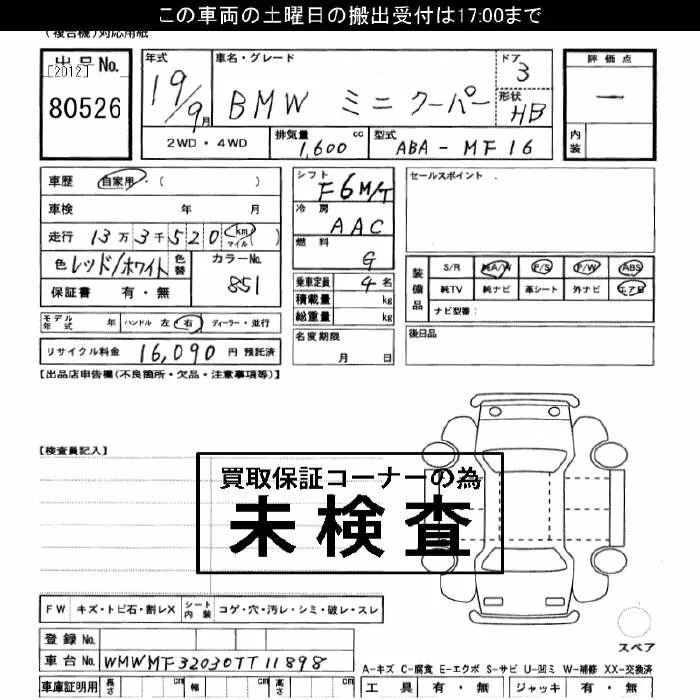 この車両の土曜日の搬出受付は17:00まで
(複合機)対応用紙
出品No.
[2012]
80526
年式
19/9月
車名・グレード
BMW ミニクーパー
ドア
3
形状
HB
2WD・4WD
排気量
1,600 cc
型式
ABA-MF16
評価点
―
内装
車歴 自家用・( )
車検 年 月
走行 13万3千520 km マイル ( )
色 レッド/ホワイト 色替
カラーNo.
851
保証書 有・無
シフト
F6M/T
冷房
AAC
燃料
G
乗車定員 4名
積載量 kg
総重量 kg
セールスポイント
装備品
S/R 純A/W P/S P/W ABS
純TV 純ナビ 革シート 外ナビ エアB
ナビ型番:
モデル年式 年 ハンドル 左 右 ディーラー・並行
名変期限
月 日
後日品
リサイクル料金 16,090 円 預託済
【出品店申告欄(不良箇所・欠品・注意事項等)】
【検査員記入】
買取保証コーナーの為
未検査
FW キズ・トビ石・割レX シート内装 コゲ・穴・汚レ・シミ・破レ・スレ
スペア
登録No.
車台No. WMWMF32030TT11898
A-キズ C-腐食 E-エクボ S-サビ U-凹ミ W-補修 XX-交換済
車庫証明用 長さ 幅 高さ
工具 有・無 ジャッキ 有・無